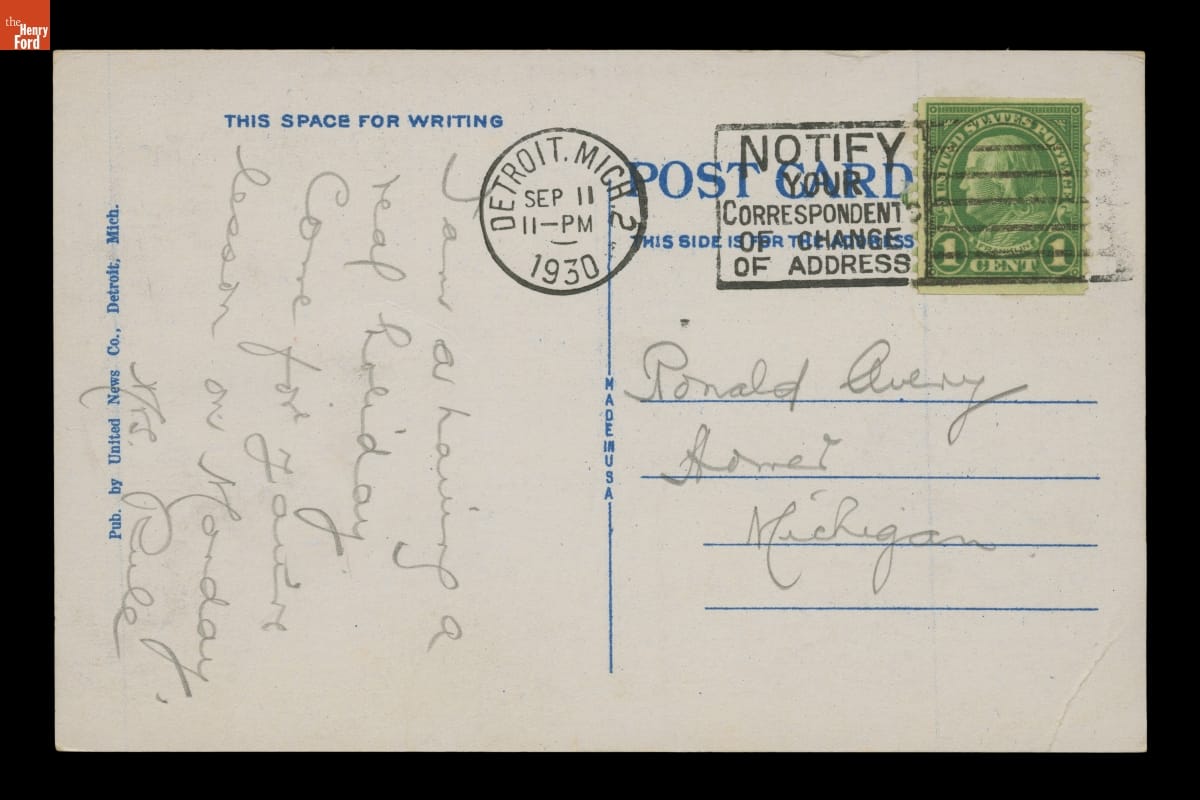 the
Henry
Ford
THIS SPACE FOR WRITING
DETROIT, MICH. 2
SEP 11
11-PM
1930
NOTIFY
YOUR
CORRESPONDENTS
OF CHANGE
OF ADDRESS
POST CARD
THIS SIDE IS FOR THE ADDRESS
UNITED STATES POSTAGE
FRANKLIN
1 CENT 1
I am having a
real holiday
Come for your
lesson on Monday.
Mrs. Rule
Ronald Avery
Homer
Michigan
MADE IN USA
Pub. by United News Co., Detroit, Mich.